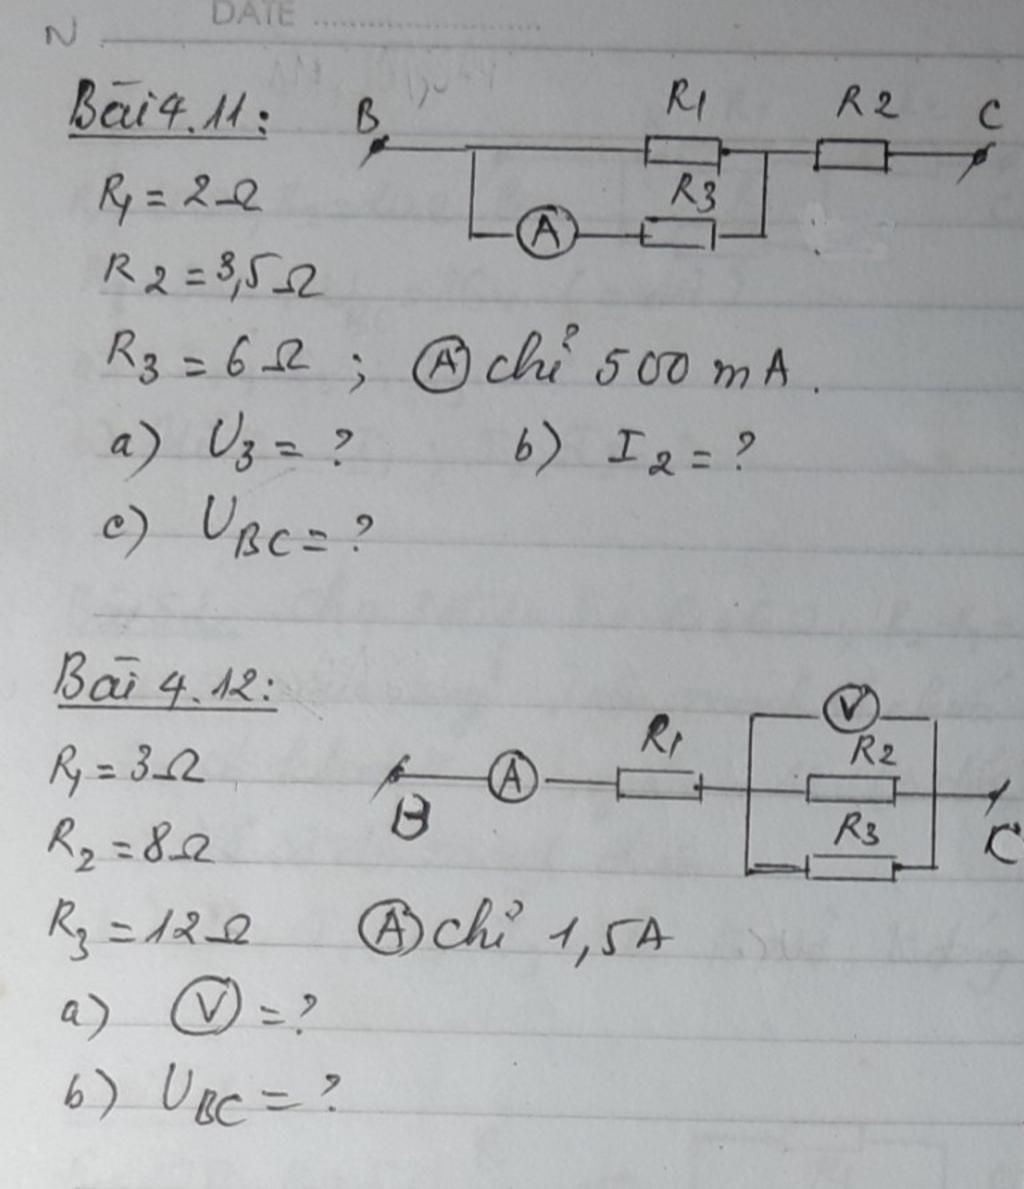 DATE
N
Bài 4.11:
B R1 R2 C
R3
A
R1 = 2Ω
R2 = 3,5Ω
R3 = 6Ω ; Ⓐ chỉ 500 mA.
a) U3 = ? b) I2 = ?
c) UBC = ?
Bài 4.12:
V
R1 R2
A
B R3 C
R1 = 3Ω
R2 = 8Ω
R3 = 12Ω Ⓐ chỉ 1,5A
a) Ⓥ = ?
b) UBC = ?